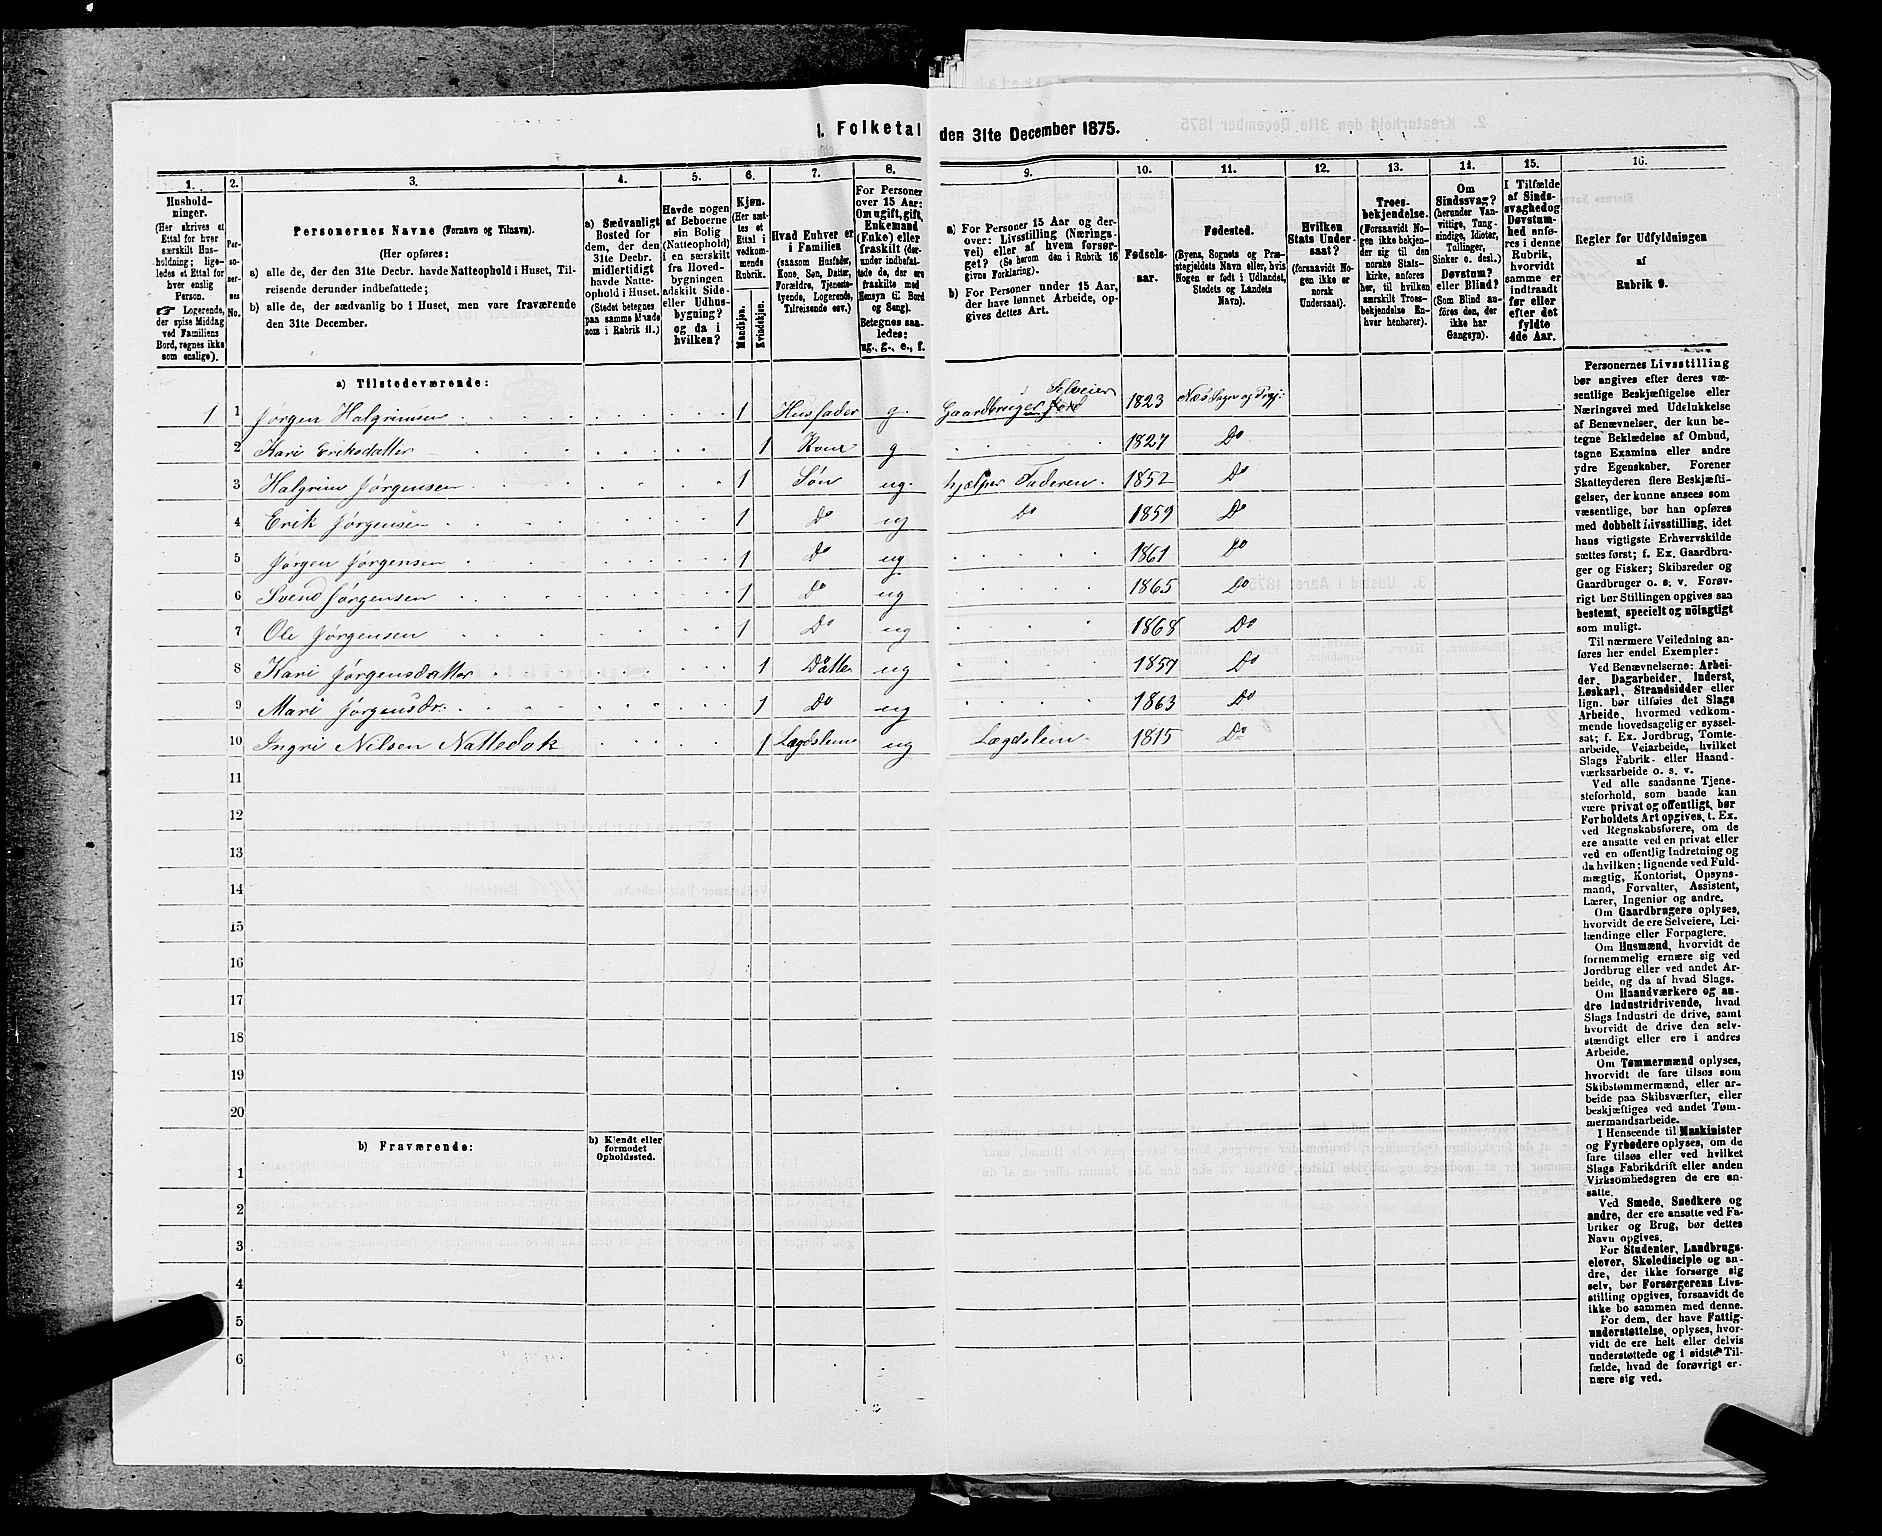 1. Folketal den 31te December 1875.
1.
Hushold-
ninger.
(Her skrives et
Ettal for hver
særskilt Hus-
holdning; lige-
ledes et Ettal for
hver enslig
Person.
☞ Logerende,
der spise Middag
ved Familiens
Bord, regnes ikke
som enslige).
2.
Per-
so-
ner-
nes
No.
3.
Personernes Navne (Fornavn og Tilnavn).
(Her opføres:
a) alle de, der den 31te Decbr. havde Natteophold i Huset, Til-
reisende derunder indbefattede;
b) alle de, der sædvanlig bo i Huset, men vare fraværende
den 31te December.
4.
a) Sædvanligt
Bosted for
dem, der den
31te Decbr.
midlertidigt
havde Natte-
ophold i Huset.
(Stedet betegnes
paa samme Maade
som i Rubrik 11.)
5.
Havde nogen
af Beboerne
sin Bolig
(Natteophold)
i en særskilt
fra Hoved-
bygningen
adskilt Side-
eller Udhus-
bygning?
og da i
hvilken?
6.
Kjøn.
(Her sæt-
tes et
Ettal i
vedkom-
mende
Rubrik.
Mandkjøn.
Kvindekjøn.
7.
Hvad Enhver er
i Familien
(saasom Husfader,
Kone, Søn, Datter,
Forældre, Tjeneste-
tyende, Logerende,
Tilreisende osv.)
8.
For Personer
over 15 Aar:
Om ugift, gift,
Enkemand
(Enke) eller
fraskilt (der-
under indbefat-
tede de, der ere
fraskilte med
Hensyn til Bord
og Seng).
Betegnes saa-
ledes:
ug., g., e., f.
9.
a) For Personer 15 Aar og der-
over: Livsstilling (Nærings-
vei) eller af hvem forsør-
get? (Se herom den i Rubrik 16
givne Forklaring).
b) For Personer under 15 Aar,
der have lønnet Arbeide, op-
gives dettes Art.
10.
Fødsels-
aar.
11.
Fødested.
(Byens, Sognets og Præ-
stegjeldets Navn eller, hvis
Nogen er født i Udlandet,
Stedets og Landets
Navn).
12.
Hvilken
Stats Under-
saat?
(forsaavidt No-
gen ikke er
norsk
Undersaat).
13.
Troes-
bekjendelse.
(Forsaavidt No-
gen ikke bekjen-
der sig til den
norske Stats-
kirke, anføres
her, til hvilken
særskilt Troes-
bekjendelse En-
hver henhører).
14.
Om
Sindssvag?
(herunder Van-
vittige, Tung-
sindige, Idioter,
Tullinger,
Sinker o. desl.)
Døvstum?
eller Blind?
(Som Blind an-
føres den, der
ikke har
Gangsyn).
15.
I Tilfælde
af Sinds-
svaghed og
Døvstum-
hed anfø-
res i denne
Rubrik,
hvorvidt
samme er
indtraadt
før eller
efter det
fyldte
4de Aar.
16.
Regler for Udfyldningen
af
Rubrik 9.
a) Tilstedeværende:
1 1 Jørgen Halgrimsen 1 Husfader g. Gaardbruger Selveier 1823 Næs Sogn og Prgj:
2 Kari Eriksdatter 1 Kone g 1827 Do
3 Halgrim Jørgensen 1 Søn ug. hjælper Faderen. 1852 Do
4 Erik Jørgensen 1 Do ug Do 1859 Do
5 Jørgen Jørgensen 1 Do ug 1861 Do
6 Svend Jørgensen 1 Do ug 1865 Do
7 Ole Jørgensen 1 Do ug 1868 Do
8 Kari Jørgensdatter 1 Datter ug 1857 Do
9 Mari Jørgensdr. 1 Do ug 1863 Do
10 Ingri Nilsen Nattedak 1 Lægdslem ug Lægdslem. 1815 Do
11
12
13
14
15
16
17
18
19
20
b) Fraværende:
b) Kjendt eller
formodet
Opholdssted.
1
2
3
4
5
6
Personernes Livsstilling
bør angives efter deres væ-
sentlige Beskjæftigelse eller
Næringsvei med Udelukkelse
af Benævnelser, der kun be-
tegne Beklædelse af Ombud,
tagne Examina eller andre
ydre Egenskaber. Forener
Skatteyderen flere Beskjæfti-
gelser, der kunne ansees som
væsentlige, bør han opføres
med dobbelt Livsstilling, idet
hans vigtigste Erhvervskilde
sættes først; f. Ex. Gaardbru-
ger og Fisker; Skibsreder og
Gaardbruger o. s. v. Forøv-
rigt bør Stillingen opgives saa
bestemt, specielt og nöiagtigt
som muligt.
Til nærmere Veiledning an-
føres her endel Exempler:
Ved Benævnelserne: Arbei-
der, Dagarbeider, Inderst,
Løskarl, Strandsidder eller
lign. bør tilføies det Slags
Arbeide, hvormed vedkom-
mende hovedsagelig er syssel-
sat; f. Ex. Jordbrug, Tomte-
arbeide, Veiarbeide, hvilket
Slags Fabrik- eller Haand-
værksarbeide o. s. v.
Ved alle saadanne Tjene-
steforhold, som baade kan
være privat og offentligt, bør
Forholdets Art opgives, t. Ex.
ved Regnskabsførere, om de
ere ansatte ved en privat eller
ved en offentlig Indretning og
da hvilken; lignende ved Fuld-
mægtig, Kontorist, Opsyns-
mand, Forvalter, Assistent,
Lærer, Ingeniør og andre.
Om Gaardbrugere oplyses,
hvorvidt de ere Selveiere, Lei-
lændinge eller Forpagtere.
Om Husmænd, hvorvidt de
fornemmelig ernære sig ved
Jordbrug eller ved andet Ar-
beide, og da af hvad Slags.
Om Haandværkere og an-
dre Industridrivende, hvad
Slags Industri de drive, samt
hvorvidt de drive den selv-
stændigt eller ere i andres
Arbeide.
Om Tømmermænd oplyses,
hvorvidt de fare tilsøs som
Skibstømmermænd, eller ar-
beide paa Skibsværfter, eller
beskjæftiges ved andet Tøm-
mermandsarbeide.
I Henseende til Maskinister
og Fyrbødere oplyses, om de
fare tilsøs eller ved hvilket
Slags Fabrikdrift eller anden
Virksomhedsgren de ere an-
satte.
Ved Smede, Snedkere og
andre, der ere ansatte ved Fa-
briker og Brug, bør dettes
Navn opgives.
For Studenter, Landbrugs-
elever, Skoledisciple og an-
dre, der ikke forsørge sig
selv, bør Forsørgerens Livs-
stilling opgives, forsaavidt de
ikke bo sammen med denne.
For dem, der have Fattig-
understøttelse, oplyses, hvor-
vidt de ere helt eller delvis
understøttede og i sidste Til-
fælde, hvad de forøvrigt er-
nære sig ved.